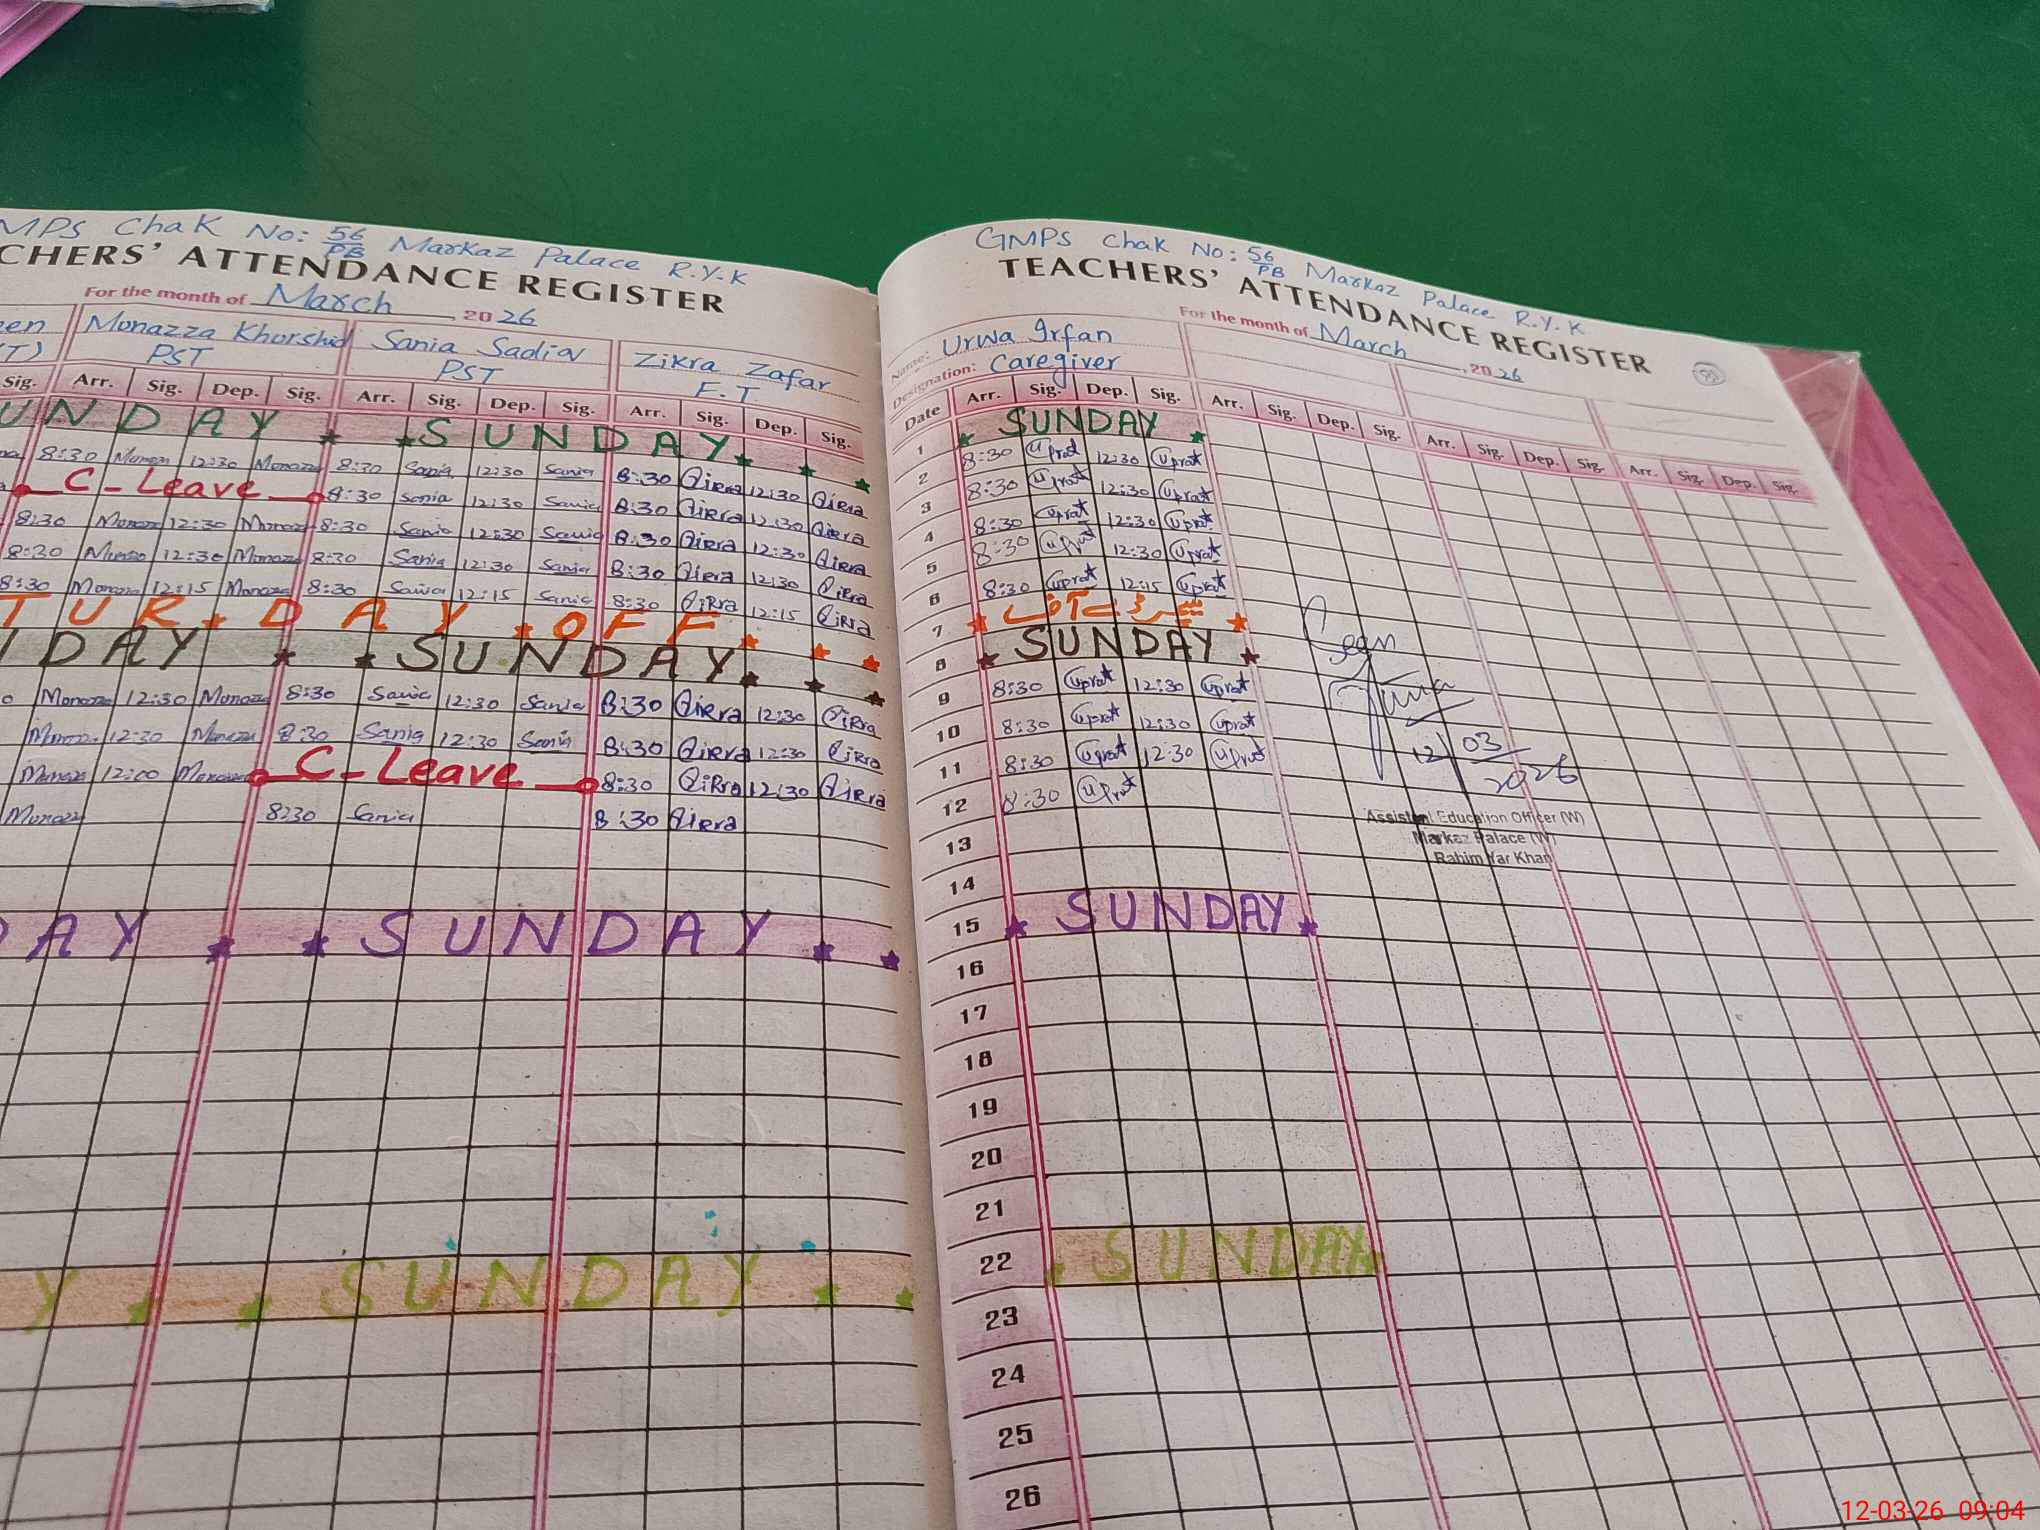 MPS Chak No: 56/PB Markaz Palace R.Y.K
CHERS' ATTENDANCE REGISTER
For the month of March, 2026
een Monazza Khorshid Sania Sadiq Zikra Zafar
(T) PST PST F.T
Sig. Arr. Sig. Dep. Sig. Arr. Sig. Dep. Sig. Arr. Sig. Dep. Sig.
UNDAY SUNDAY
8:30 Monaz 12:30 Monazza 8:30 Sania 12:30 Sania 8:30 Qirra 12:30 Qirra
C-Leave 8:30 Sania 12:30 Sania 8:30 Qirra 12:30 Qirra
8:30 Monazz 12:30 Monazz 8:30 Sania 12:30 Sania 8:30 Qirra 12:30 Qirra
8:30 Monazz 12:30 Monazz 8:30 Sania 12:30 Sania 8:30 Qirra 12:30 Qirra
8:30 Monazza 12:15 Monazza 8:30 Sania 12:15 Sania 8:30 Qirra 12:15 Qirra
TUR.DAY OFF
NDAY SUNDAY
0 Monazza 12:30 Monazza 8:30 Sania 12:30 Sania 8:30 Qirra 12:30 Qirra
Monazz 12:30 Monazza 8:30 Sania 12:30 Sania 8:30 Qirra 12:30 Qirra
Monazz 12:00 Monazza C-Leave 8:30 Qirra 12:30 Qirra
Monazz 8:30 Sania 8:30 Qirra
DAY SUNDAY
Y SUNDAY
GMPS Chak No: 56/PB Markaz Palace R.Y.K
TEACHERS' ATTENDANCE REGISTER
For the month of March, 2026
Name: Urwa Irfan
Designation: Caregiver
Date Arr. Sig. Dep. Sig. Arr. Sig. Dep. Sig. Arr. Sig. Dep. Sig. Arr. Sig. Dep. Sig.
1 SUNDAY
2 8:30 12:30
3 8:30 12:30
4 8:30 12:30
5 8:30 12:30
6 8:30 12:15
7
8 SUNDAY
9 8:30 12:30
10 8:30 12:30
11 8:30 12:30
12 8:30
Seen
12/03/2026
Assistant Education Officer (W)
Markaz Palace (W)
Rahim Yar Khan
13
14
15 SUNDAY
16
17
18
19
20
21
22 SUNDAY
23
24
25
26
12-03-26 09:04